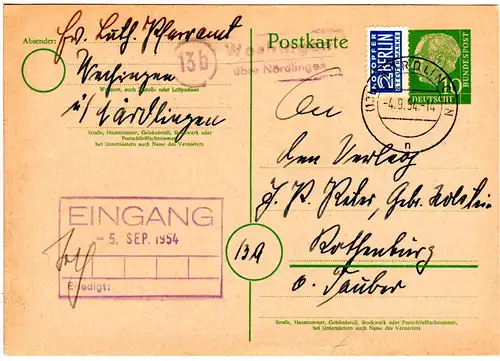 Absender:
Ev. Luth. Pfarramt
Wechingen
Wohnort, auch Zustell- oder Leitpostamt
ü/ Nördlingen
Straße, Hausnummer, Gebäudeteil, Stockwerk oder
Postschließfachnummer,
bei Untermietern auch Name des Vermieters
13b
Wechingen
über Nördlingen
Postkarte
NOTOPFER
2 BERLIN
STEUERMARKE
10
DEUTSCHE BUNDESPOST
NÖRDLINGEN
-4.9.54.-14
n
An
den Verlag
J. P. Peter, Gebr. Holstein
13a
Rothenburg
o. Tauber
Straße, Hausnummer, Gebäudeteil, Stockwerk oder Postschließfachnummer,
bei Untermietern auch Name des Vermieters
EINGANG
- 5. SEP. 1954
Erledigt: